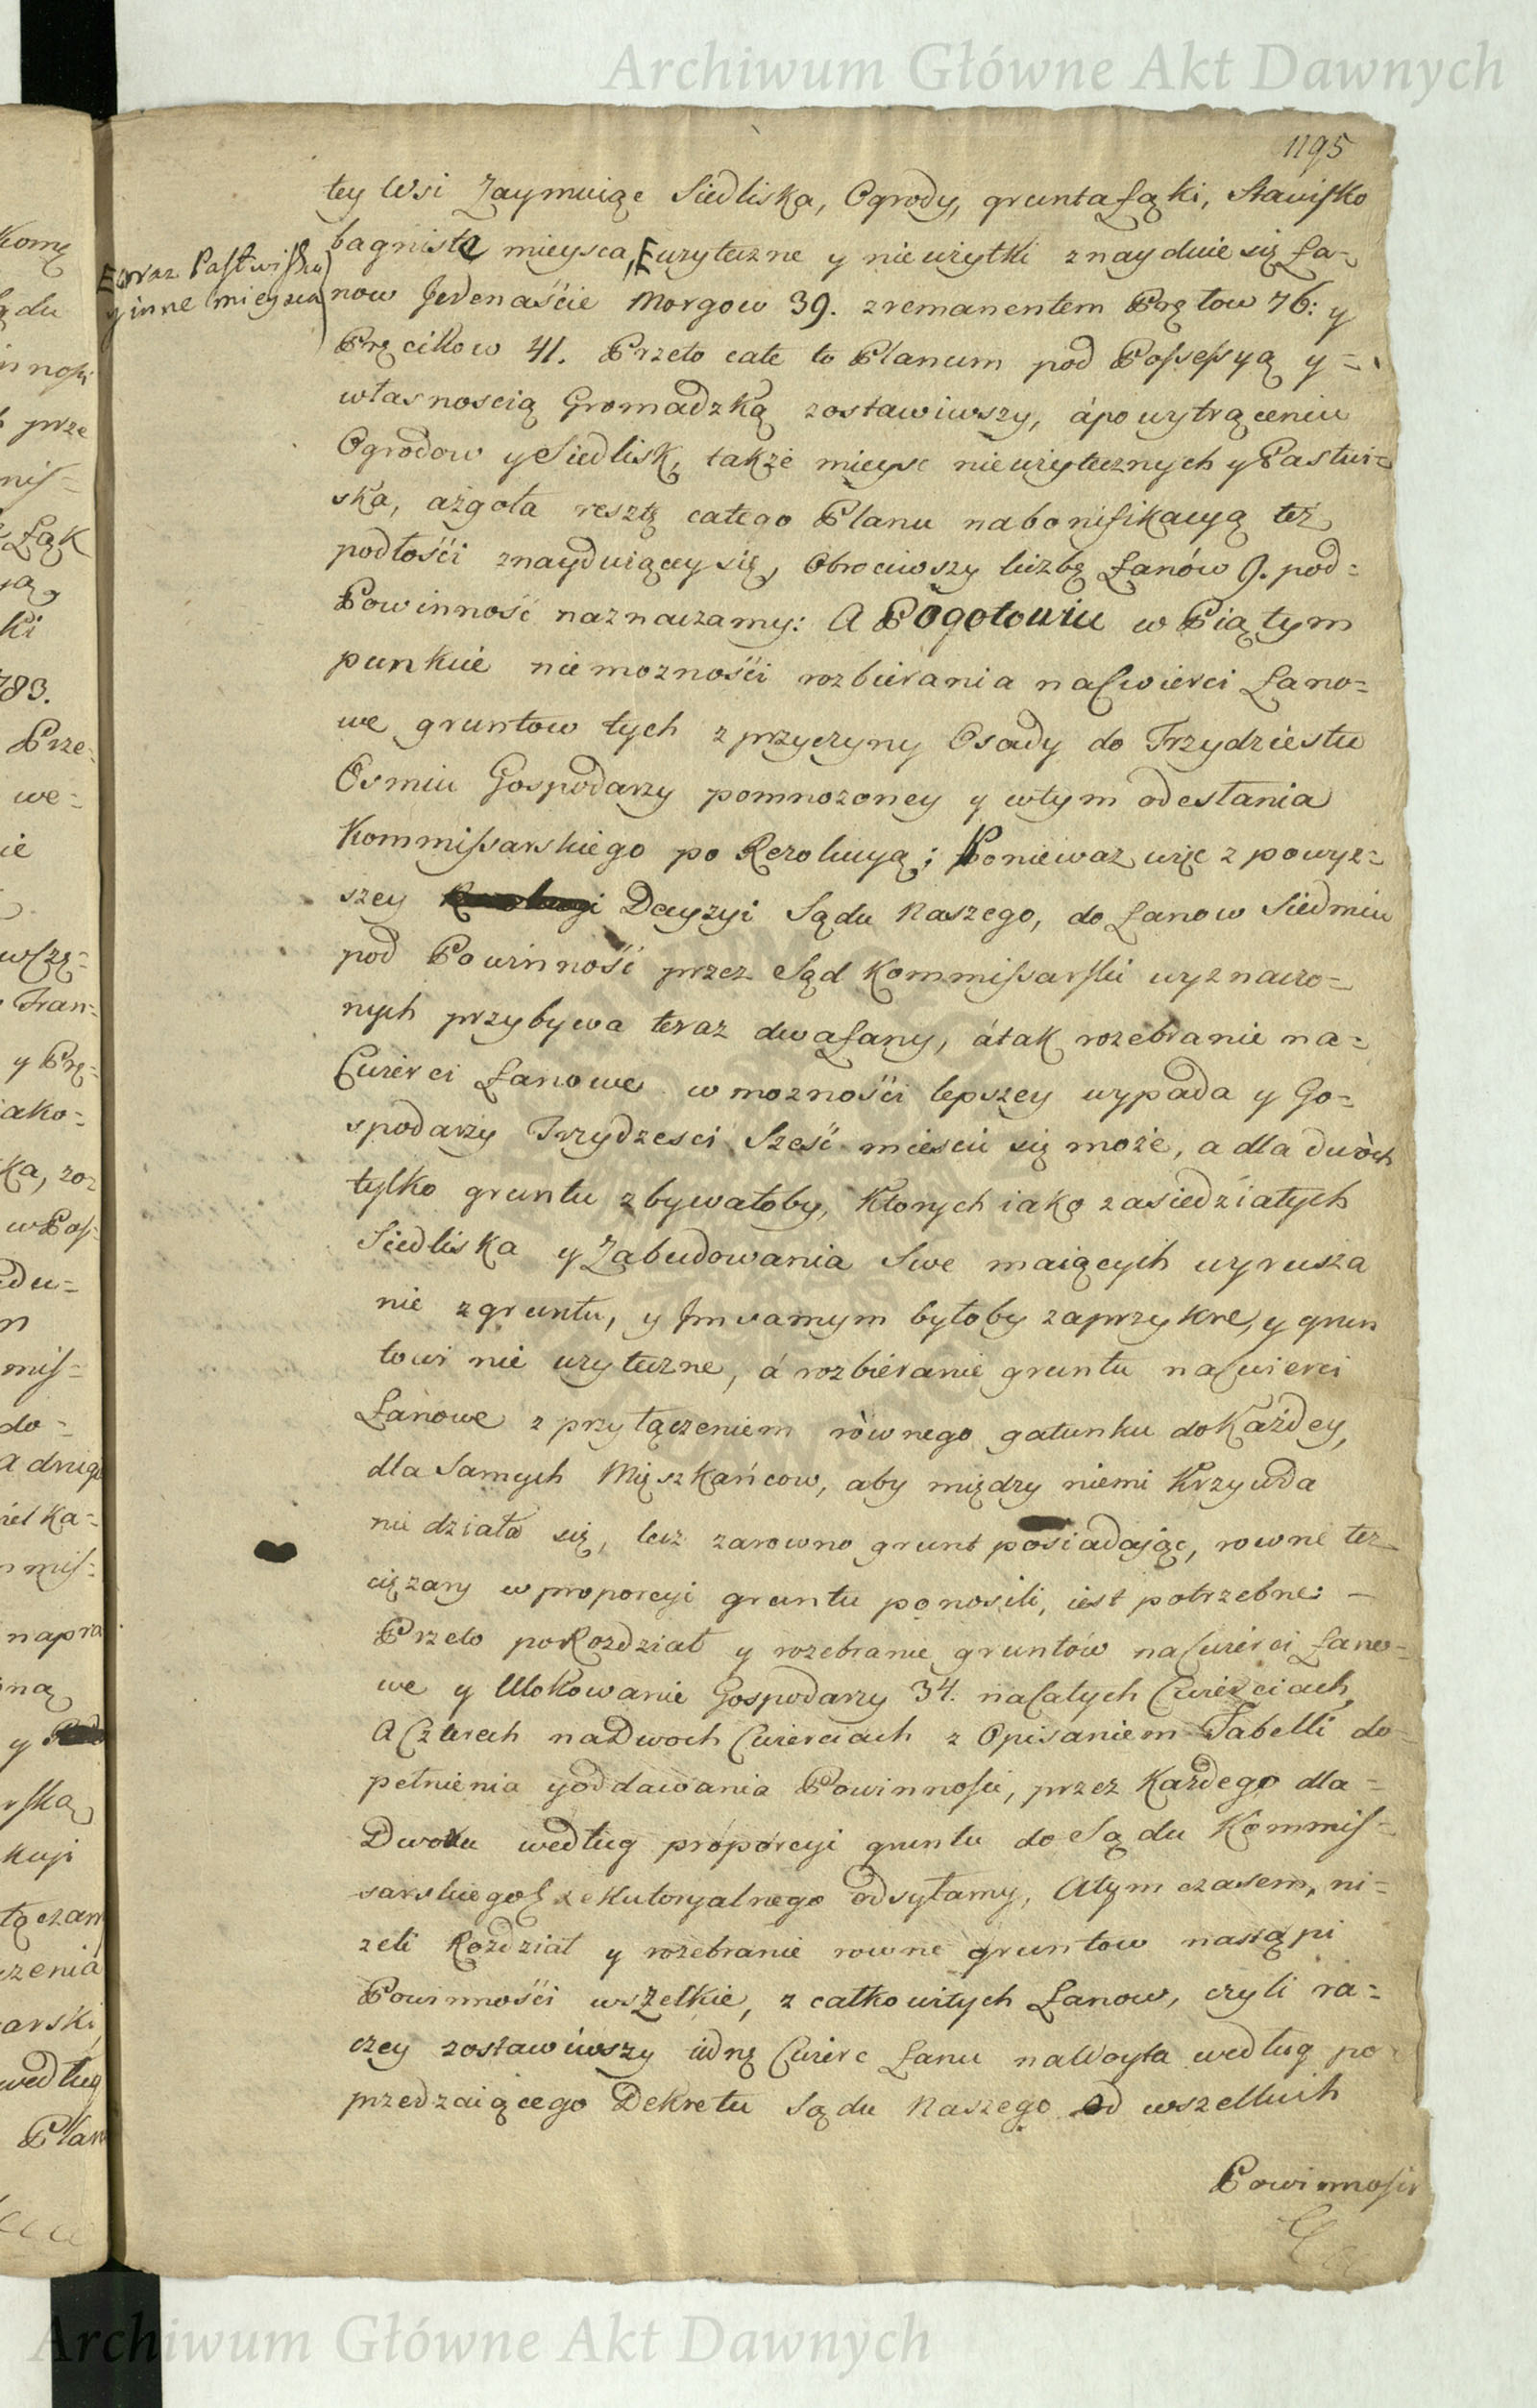 Archiwum Główne Akt Dawnych
1195
tey Wsi Zaymuiąc Siedliska, Ogrody, grunta Łąki, Stawisko
bagniste mieysca, użyteczne y nieużytki znayduie się Ła-
oraz Pastwiska
y inne mieysca
now Jedenaście Morgow 39. z remanentem Prętow 76: y
Pręcikow 41. Przeto całe to Planum pod Possessyą y =
własnoscią Gromadzką zostawiwszy, á po wytrąceniu
Ogrodow y Siedlisk, także mieysc nieużytecznych y Pastwi=
ska, ażgoła resztę całego Planu na bonifikacyą też
podłośći znayduiącey się, obrociwszy liczbę Łanów 9. pod=
Powinność naznaczamy: A Pogotowiu w Piątym
punkcie niemoznośći rozbierania na Cwierci Łano=
we gruntow tych z przyczyny Osady do Trzydziestu
Osmiu Gospodarzy pomnozoney y w tym odesłania
Kommissarskiego po Rezolucyą; Ponieważ więc z powyż=
szey Decyzyi Sądu Naszego, do Łanow Siedmiu
pod Powinność przez Sąd Kommissarski wyznaczo=
nych przybywa teraz dwa Łany, á tak rozebranie na=
Cwierci Łanowe w moznośći lepszey wypada y Go=
spodarzy Trzydzesci Sześć miescić się może, a dla dwòch
tylko gruntu zbywałoby, Ktorych iako zasiedziałych
Siedliska y Zabudowania Swe maiących wyrusza
nie z gruntu, y Jm samym byłoby zaprzykre, y grun
towi nie użyteczne, á rozbieranie gruntu na Cwierci
Łanowe z przyłączeniem równego gatunku do Każdey,
dla Samych Mięszkańcow, aby między niemi Krzywda
nie działa się, lecz zarowno grunt posiadając, rowne tez
ciężary w proporcyi gruntu ponosili, iest potrzebne: –
Przeto po Rozdział y rozebranie gruntów na Cwierci Łano=
we y Ulokowanie Gospodarzy 34. na Całych Cwierciach,
A Czterech na Dwoch Cwierciach z Opisaniem Tabelli do=
pełnienia y oddawania Powinności, przez Każdego dla=
Dworu według proporcyi gruntu do Sądu Kommis=
sarskiego Exekutoryalnego odsyłamy, A tym czasem, ni=
zeli Rozdział y rozebranie rowne gruntow nastąpi
Powinnośći wszelkie, z całkowitych Łanow, czyli ra=
czey zostawiwszy iednę Cwierc Łanu na Woyta według po
przedzaiącego Dekretu Sądu Naszego od wszelkich
Powinności
Archiwum Główne Akt Dawnych